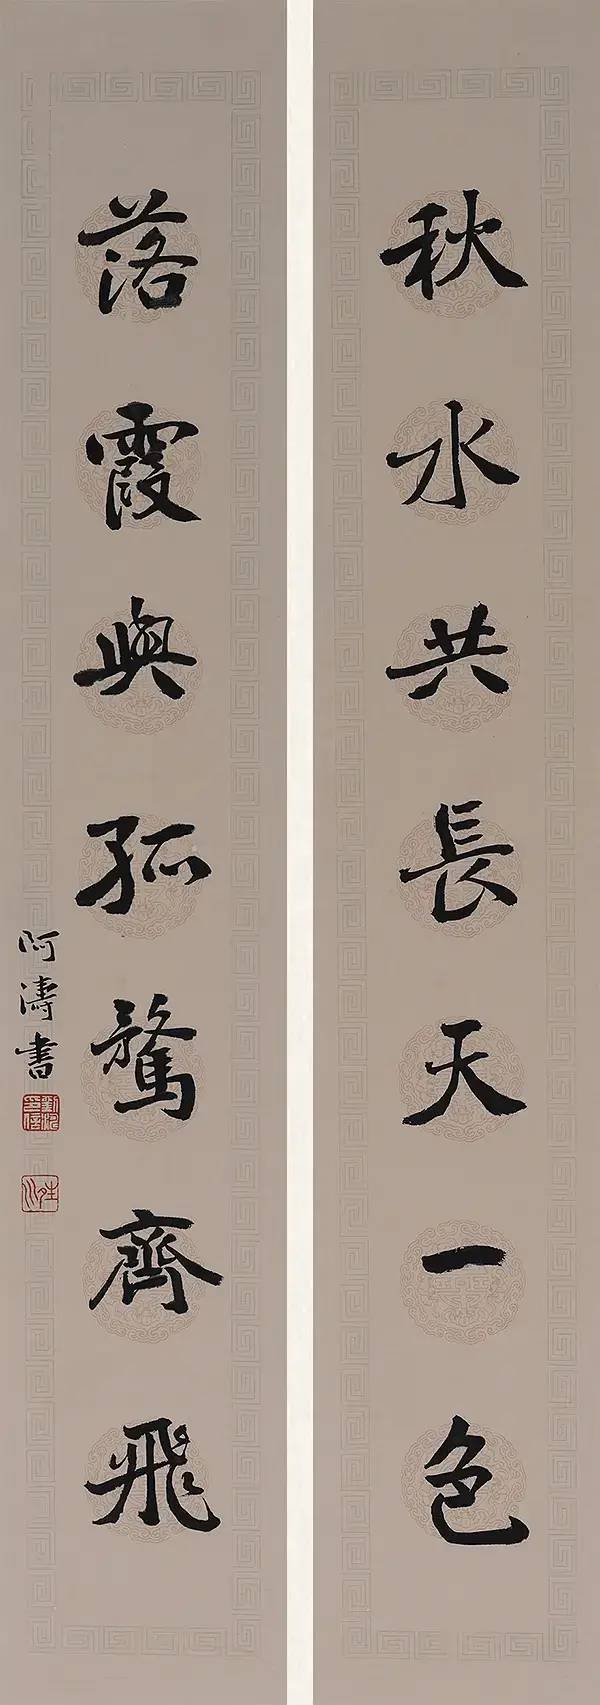 秋水共長天一色
落霞與孤鶩齊飛
阿濤書